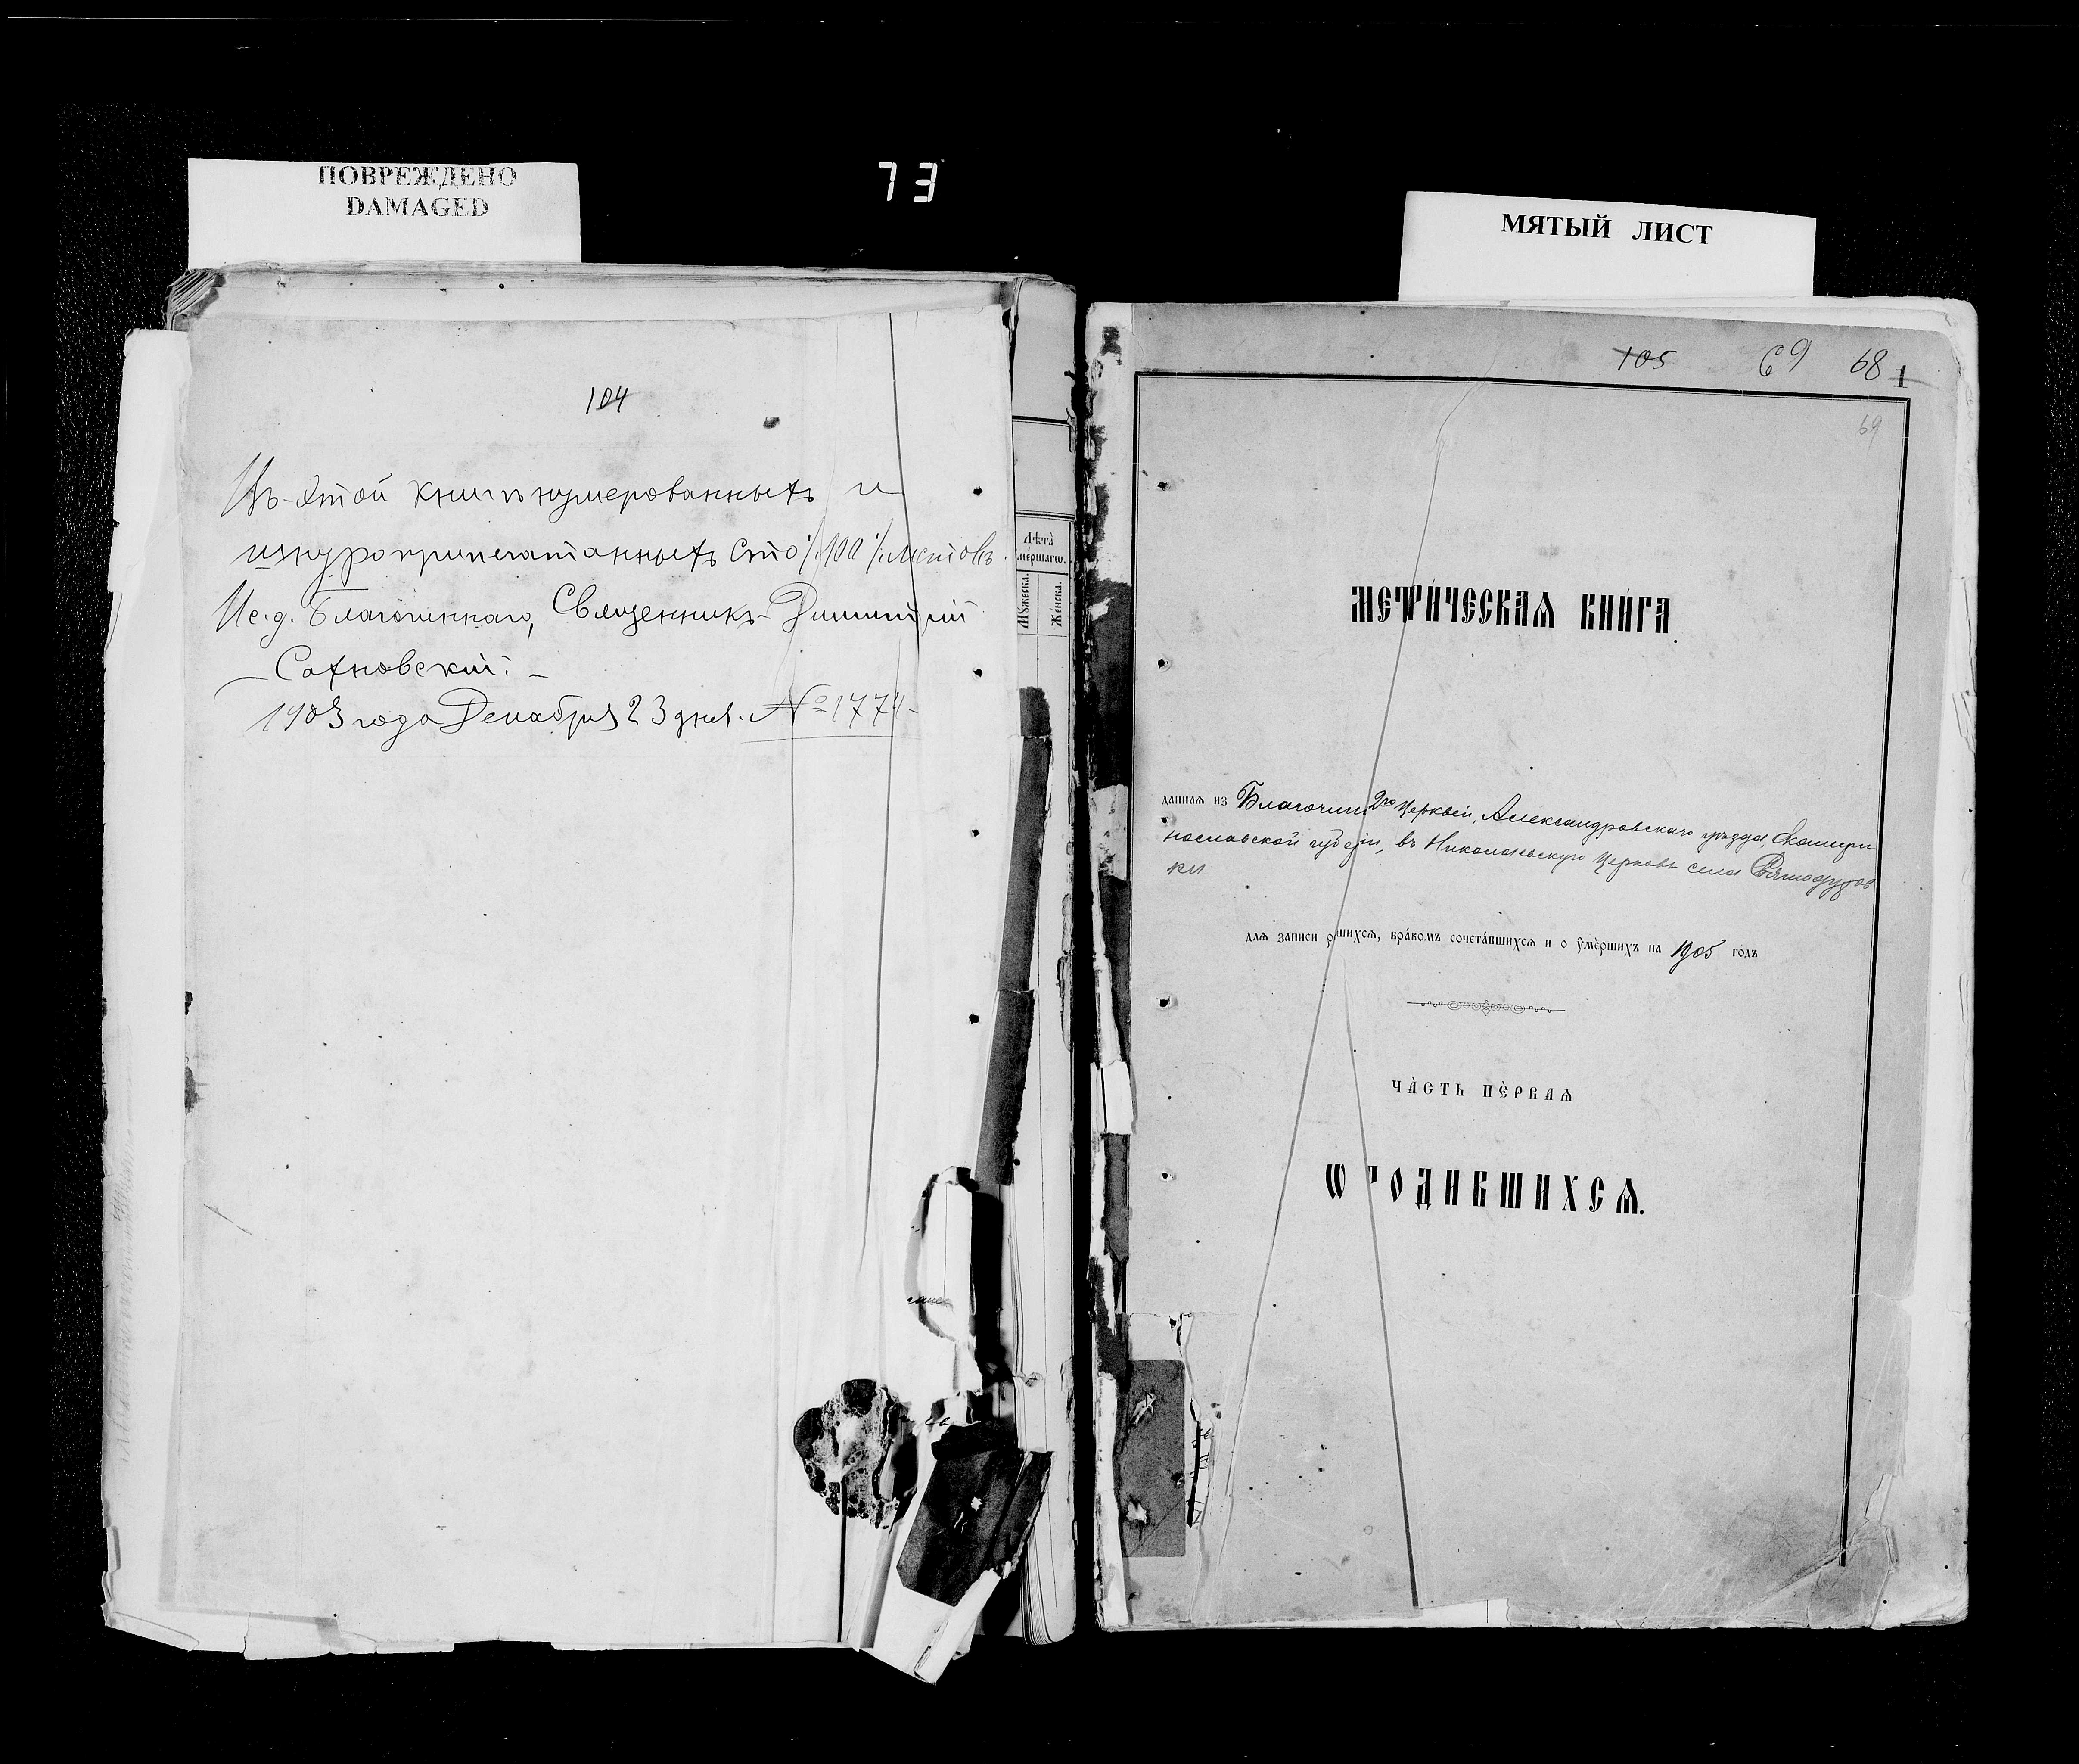 ПОВРЕЖДЕНО
DAMAGED
73
МЯТЫЙ ЛИСТ
104
Въ этой книгѣ нумерованныхъ и
шнуроприпечатанныхъ сто /100/ листовъ.
Ис. д. Благочиннаго, Священникъ Димитрій
Сахновскій.
1903 года Декабря 23 дня. № 1774
Лѣта
умершагѡ.
Мужеска.
Женска.
105 69 68 1
69
МЕТРИ́ЧЕСКАѦ КНИ́ГА
даннаѧ из Благочин 2го Церквей, Александровскаго уѣзда, Екатери
нославской губерніи, въ Николаевскую Церковь села
ки
длѧ записи р шихсѧ, бра́комъ сочета́вшихсѧ и о ᲂумершихъ на 1905 годъ
ЧА́СТЬ ПЕ́РВАѦ
Ѡ РОДИВШИХСѦ.